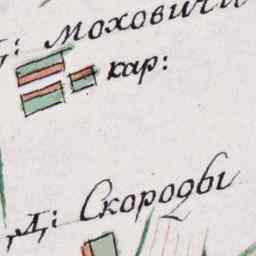 Д: Моховичи
кар:
Д: Скороды